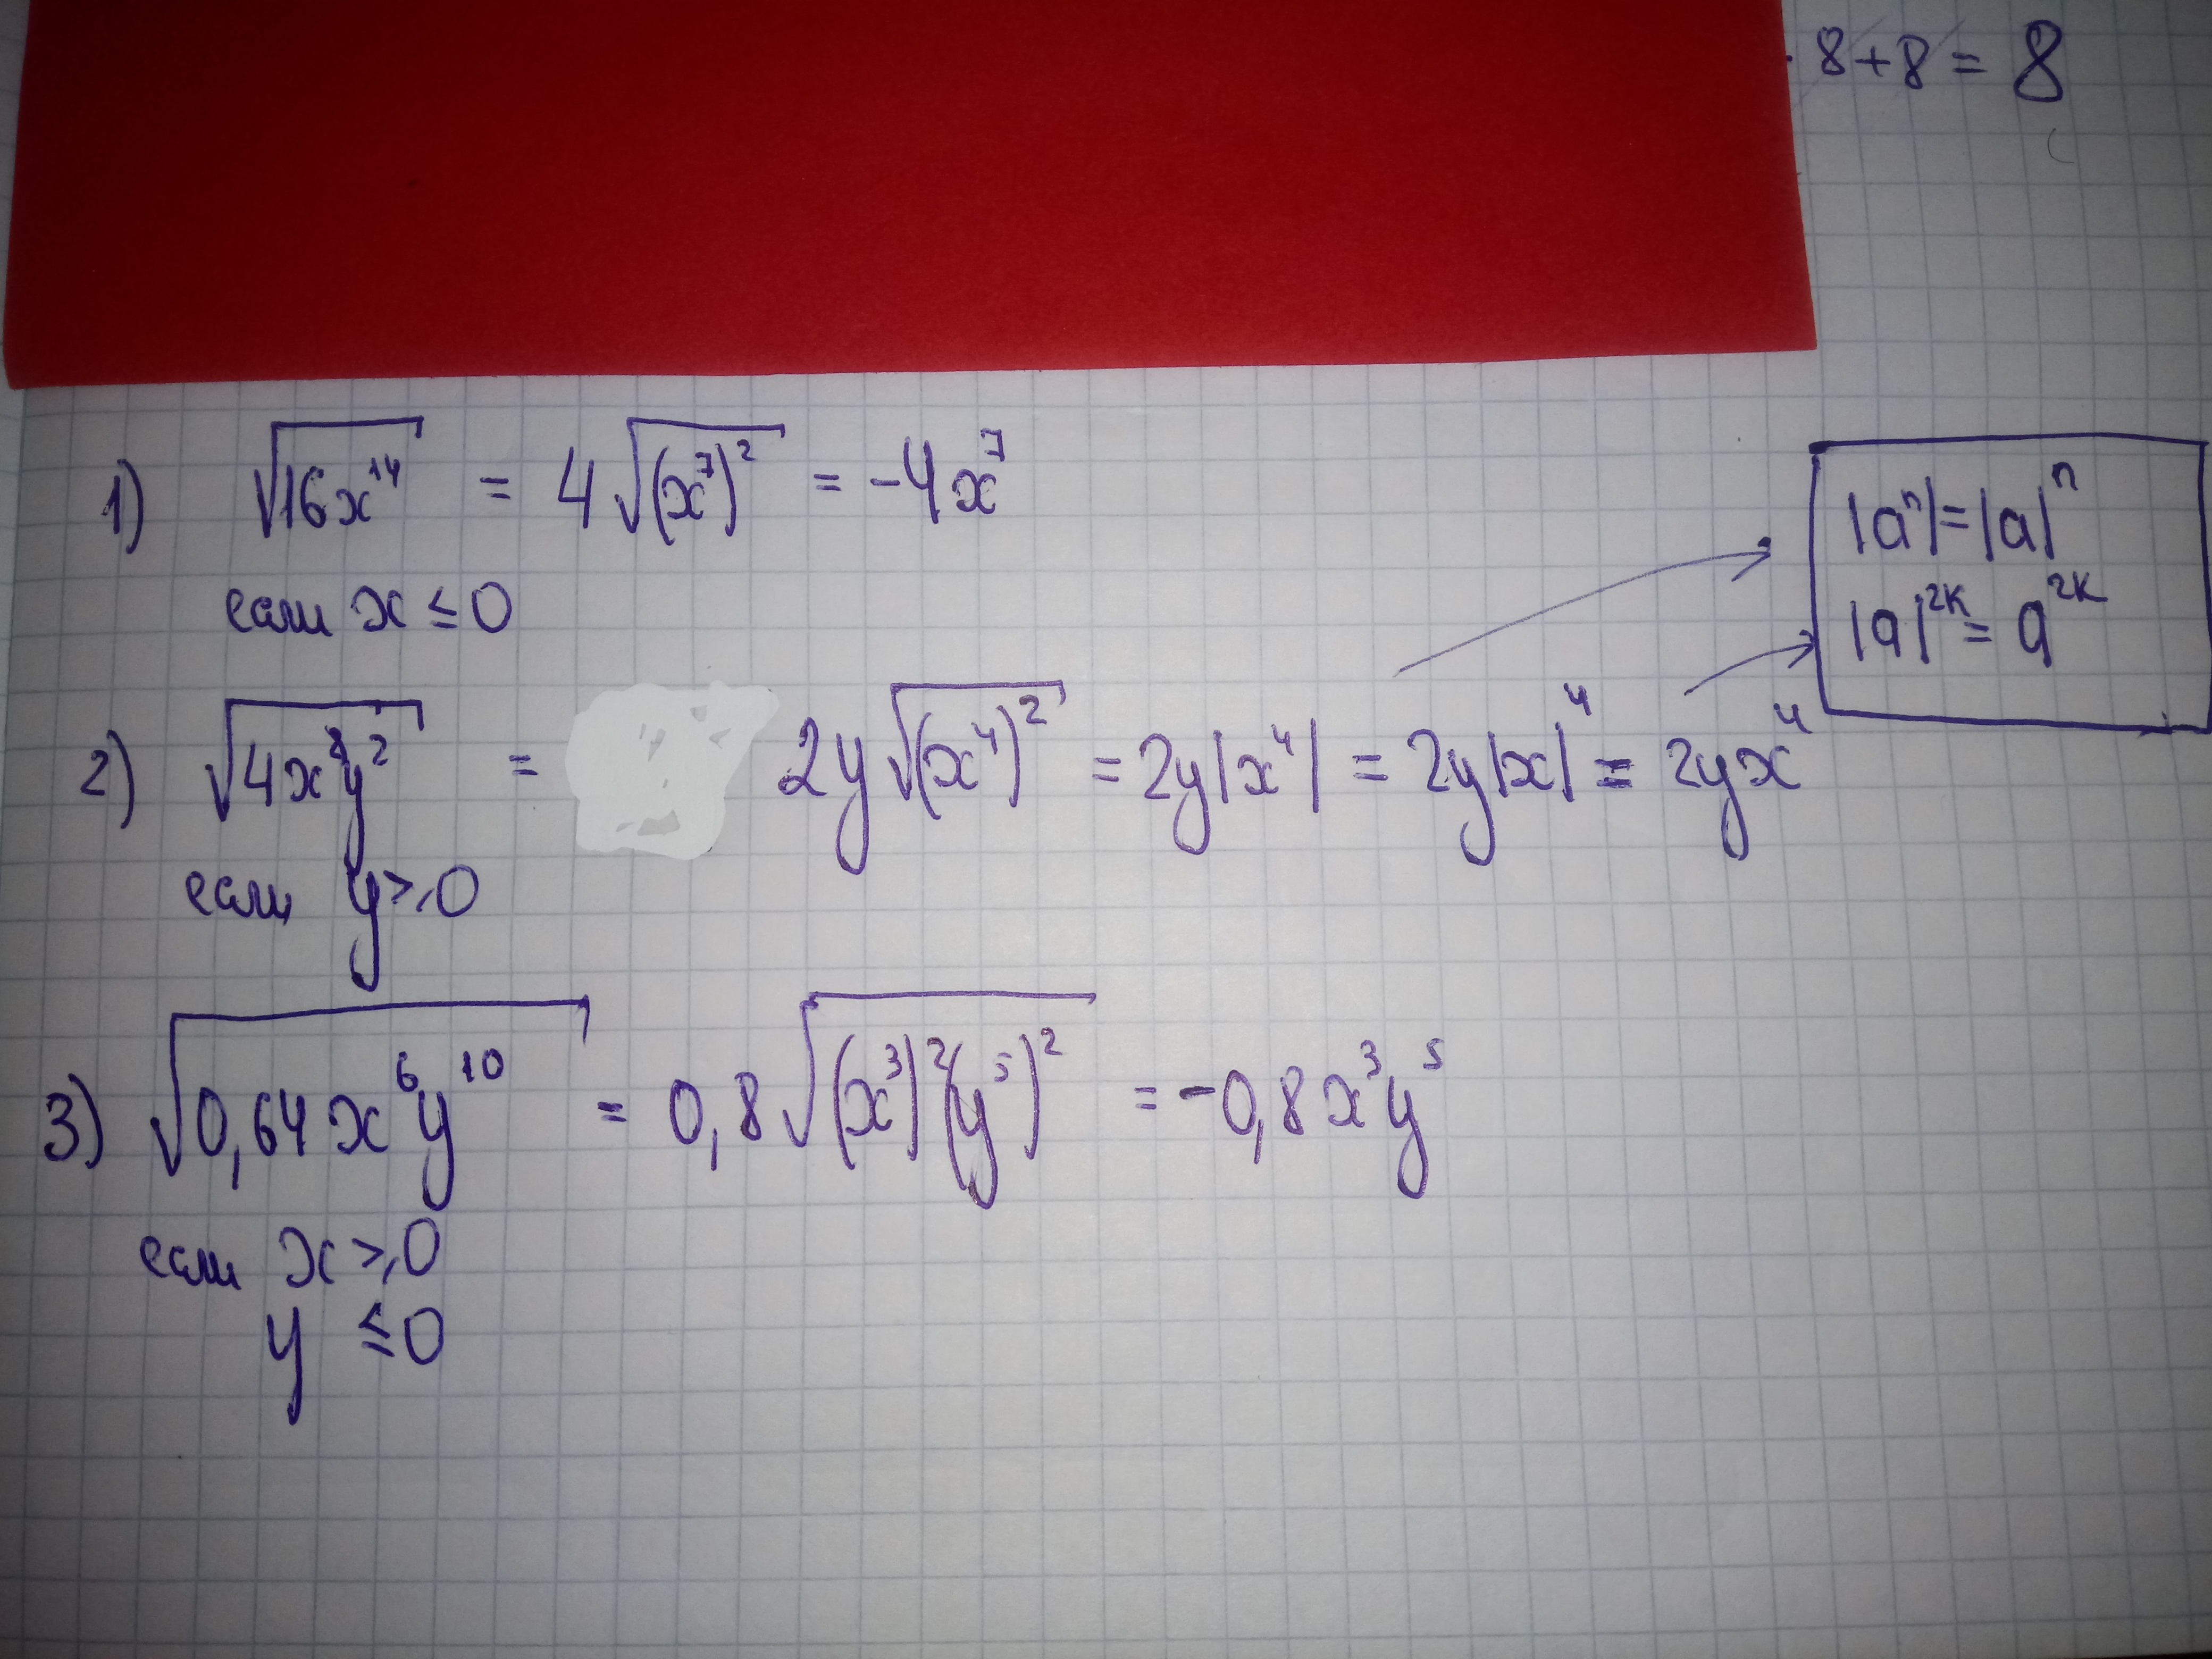 · 8 + 8 = 8
1) √(16x¹⁴) = 4√((x⁷)²) = -4x⁷
если x ≤ 0
|aⁿ| = |a|ⁿ
|a|²ᴷ = a²ᴷ
2) √(4x⁸y²) = 2y√((x⁴)²) = 2y|x⁴| = 2y|x|⁴ = 2yx⁴
если y ≥ 0
3) √(0,64x⁶y¹⁰) = 0,8√((x³)²(y⁵)²) = -0,8x³y⁵
если x ≥ 0
y ≤ 0